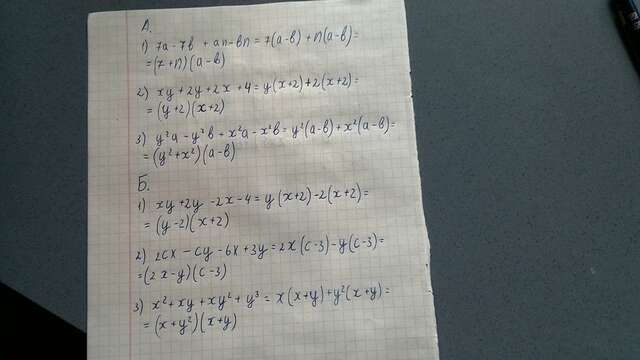 А.
1) 7a-7b + an-bn = 7(a-b) + n(a-b)=
=(7+n)(a-b)
2) xy + 2y + 2x + 4 = y(x+2)+2(x+2)=
=(y+2)(x+2)
3) y²a - y²b + x²a - x²b = y²(a-b)+x²(a-b)=
=(y²+x²)(a-b)
Б.
1) xy+2y -2x-4 = y(x+2)-2(x+2)=
=(y-2)(x+2)
2) 2cx - cy - 6x + 3y = 2x(c-3)-y(c-3)=
=(2x-y)(c-3)
3) x²+xy + xy²+y³ = x(x+y)+y²(x+y)=
=(x+y²)(x+y)